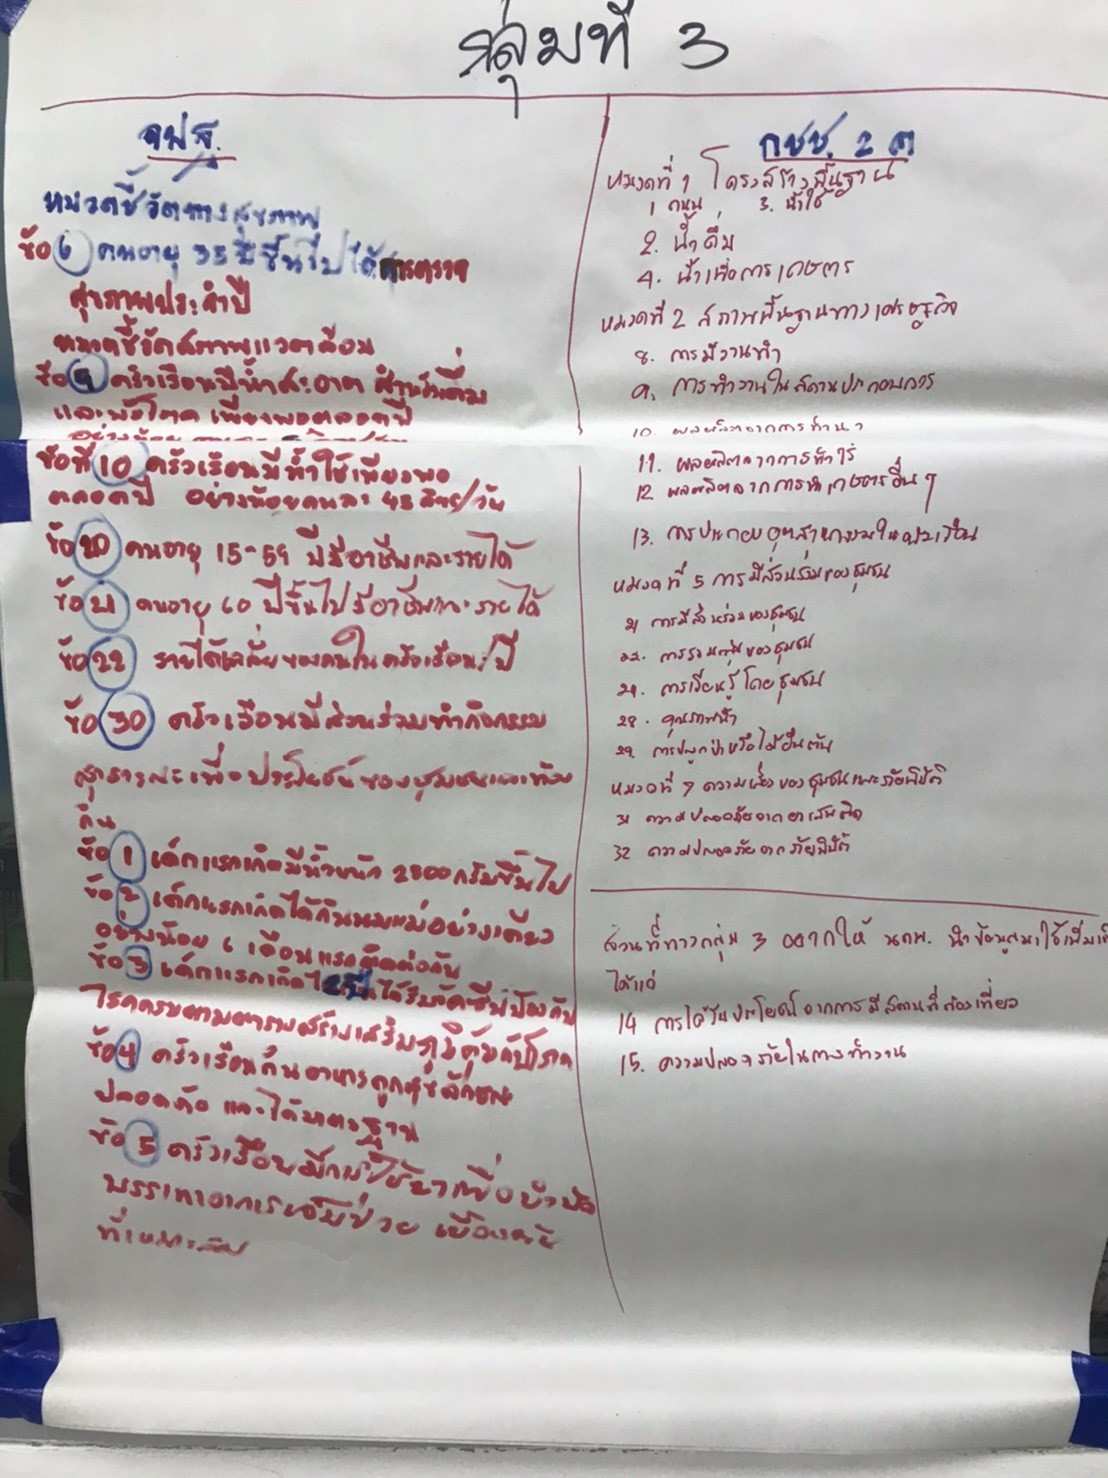 กลุ่มที่ 3
จปฐ.
หมวดชี้วัดทางสุขภาพ
ข้อ 6 คนอายุ 35 ปีขึ้นไปได้การตรวจ
สุขภาพประจำปี
หมวดชี้วัดสภาพแวดล้อม
ข้อ 9 ครัวเรือนมีน้ำสะอาด สำหรับดื่ม
และบริโภค เพียงพอตลอดปี
ข้อที่ 10 ครัวเรือนมีน้ำใช้เพียงพอ
ตลอดปี อย่างน้อยคนละ 45 ลิตร/วัน
ข้อ 20 คนอายุ 15-59 ปีมีอาชีพและรายได้
ข้อ 21 คนอายุ 60 ปีขึ้นไปมีอาชีพและรายได้
ข้อ 22 รายได้เฉลี่ยของคนในครัวเรือน/ปี
ข้อ 30 ครัวเรือนมีส่วนร่วมทำกิจกรรม
สาธารณะเพื่อประโยชน์ของชุมชนและท้อง
ถิ่น
ข้อ 1 เด็กแรกเกิดมีน้ำหนัก 2500 กรัมขึ้นไป
ข้อ 2 เด็กแรกเกิดได้กินนมแม่อย่างเดียว
อย่างน้อย 6 เดือนแรกติดต่อกัน
ข้อ 3 เด็กแรกเกิดได้รับวัคซีนป้องกัน
โรคครบตามตารางสร้างเสริมภูมิคุ้มกันโรค
ข้อ 4 ครัวเรือนกินอาหารถูกสุขลักษณะ
ปลอดภัย และได้มาตรฐาน
ข้อ 5 ครัวเรือนมีการใช้ยาเพื่อบำบัด
บรรเทาอาการเจ็บป่วย เบื้องต้น
ที่เหมาะสม
กชช. 2 ค
หมวดที่ 1 โครงสร้างพื้นฐาน
1 ถนน 3. น้ำใช้
2. น้ำดื่ม
4. น้ำเพื่อการเกษตร
หมวดที่ 2 สภาพพื้นฐานทางเศรษฐกิจ
8. การมีงานทำ
9. การทำงานในสถานประกอบการ
10. ผลผลิตจากการทำนา
11. ผลผลิตจากการทำไร่
12 ผลผลิตจากการทำเกษตรอื่นๆ
13. การประกอบอุตสาหกรรมในครัวเรือน
หมวดที่ 5 การมีส่วนร่วมของชุมชน
21 การมีส่วนร่วมของชุมชน
22. การรวมกลุ่มของชุมชน
24. การเรียนรู้โดยชุมชน
28. คุณภาพน้ำ
29. การปลูกป่าหรือไม้ยืนต้น
หมวดที่ 7 ความเสี่ยงของชุมชนและภัยพิบัติ
31 ความปลอดภัยจากยาเสพติด
32 ความปลอดภัยจากภัยพิบัติ
ส่วนที่ทางกลุ่ม 3 อยากให้ นภพ. นำข้อมูลมาใช้เพิ่มเติม
ได้แก่
14 การได้รับประโยชน์จากการมีสถานที่ท่องเที่ยว
15. ความปลอดภัยในการทำงาน